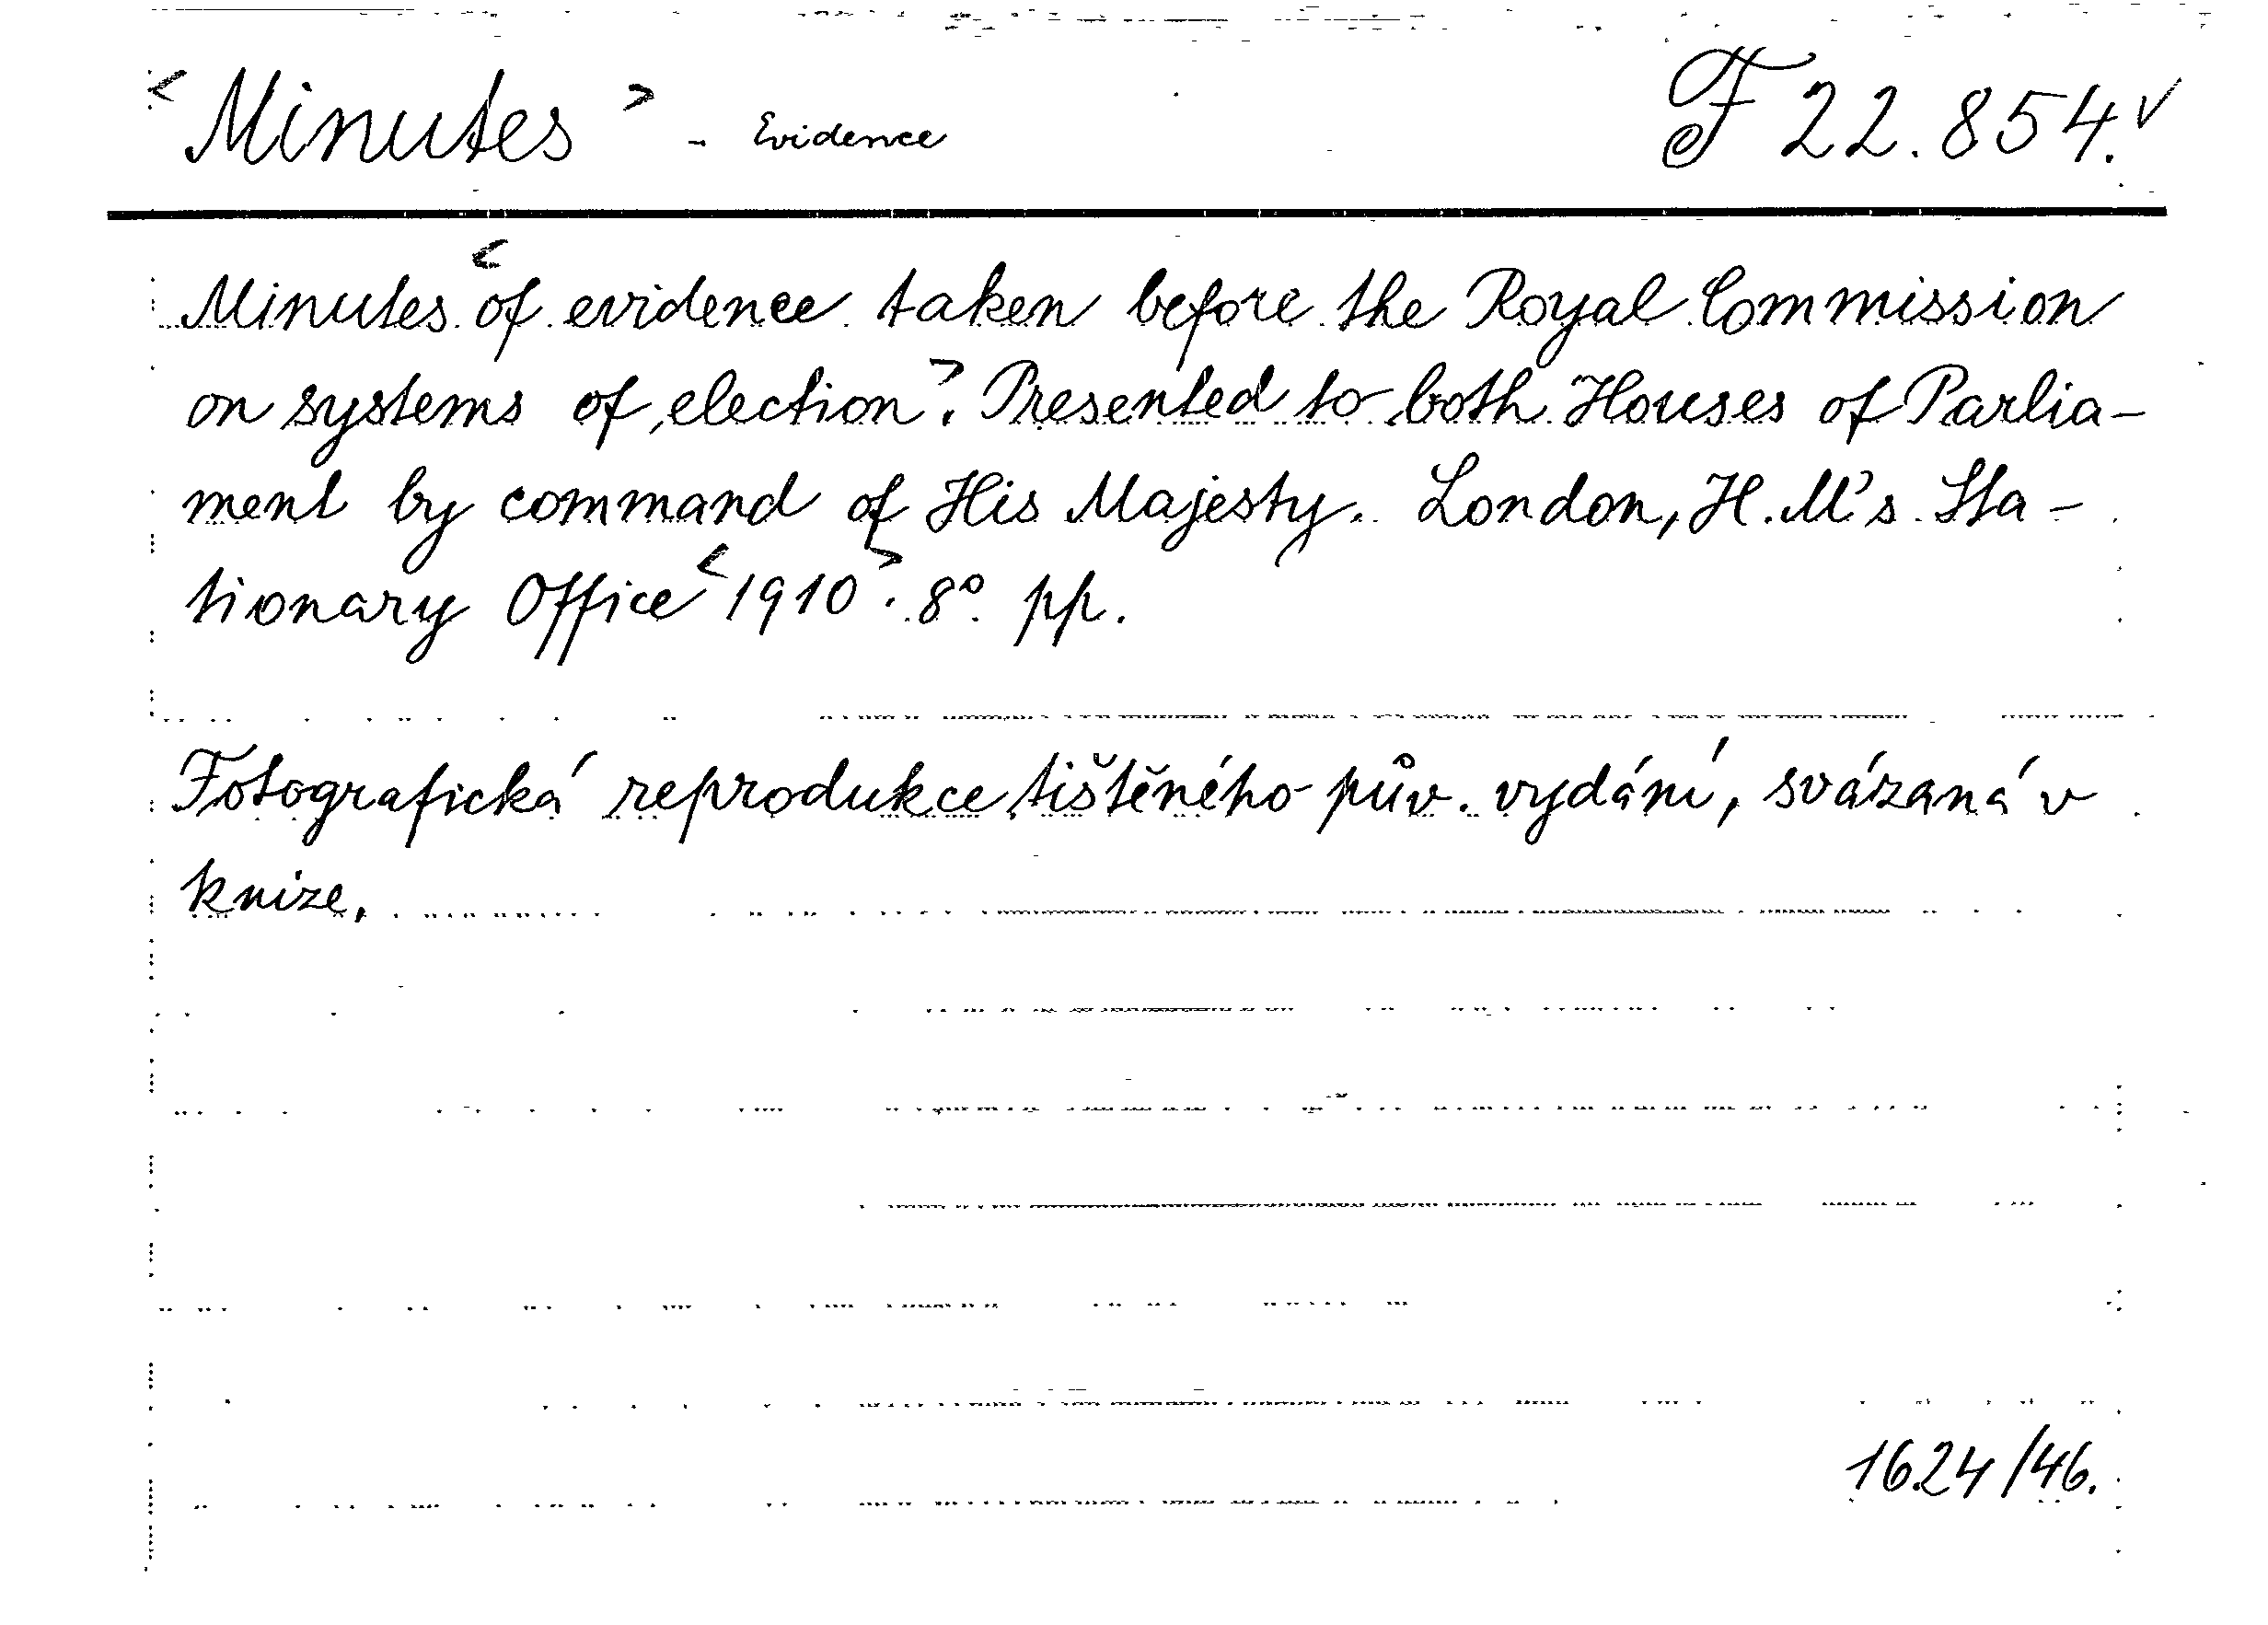 <Minutes> - Evidence F 22.854.✓
Minutes <of evidence taken before the Royal Commission
on systems of election>. Presented to both Houses of Parlia-
ment by command of His Majesty. London, H.M's. Sta-
tionary Office <1910>. 8° pp.
Fotografická reprodukce tištěného pův. vydání, svázaná v
knize.
1624/46.